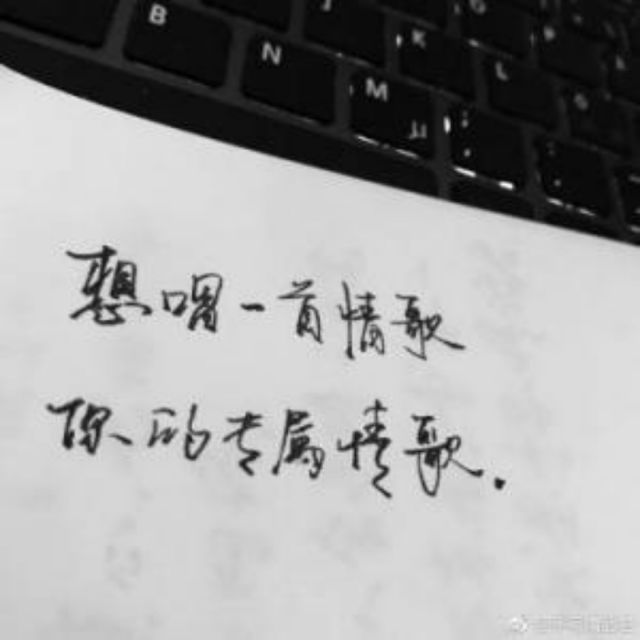 B
N
M
K
L
想唱一首情歌
你的专属情歌.